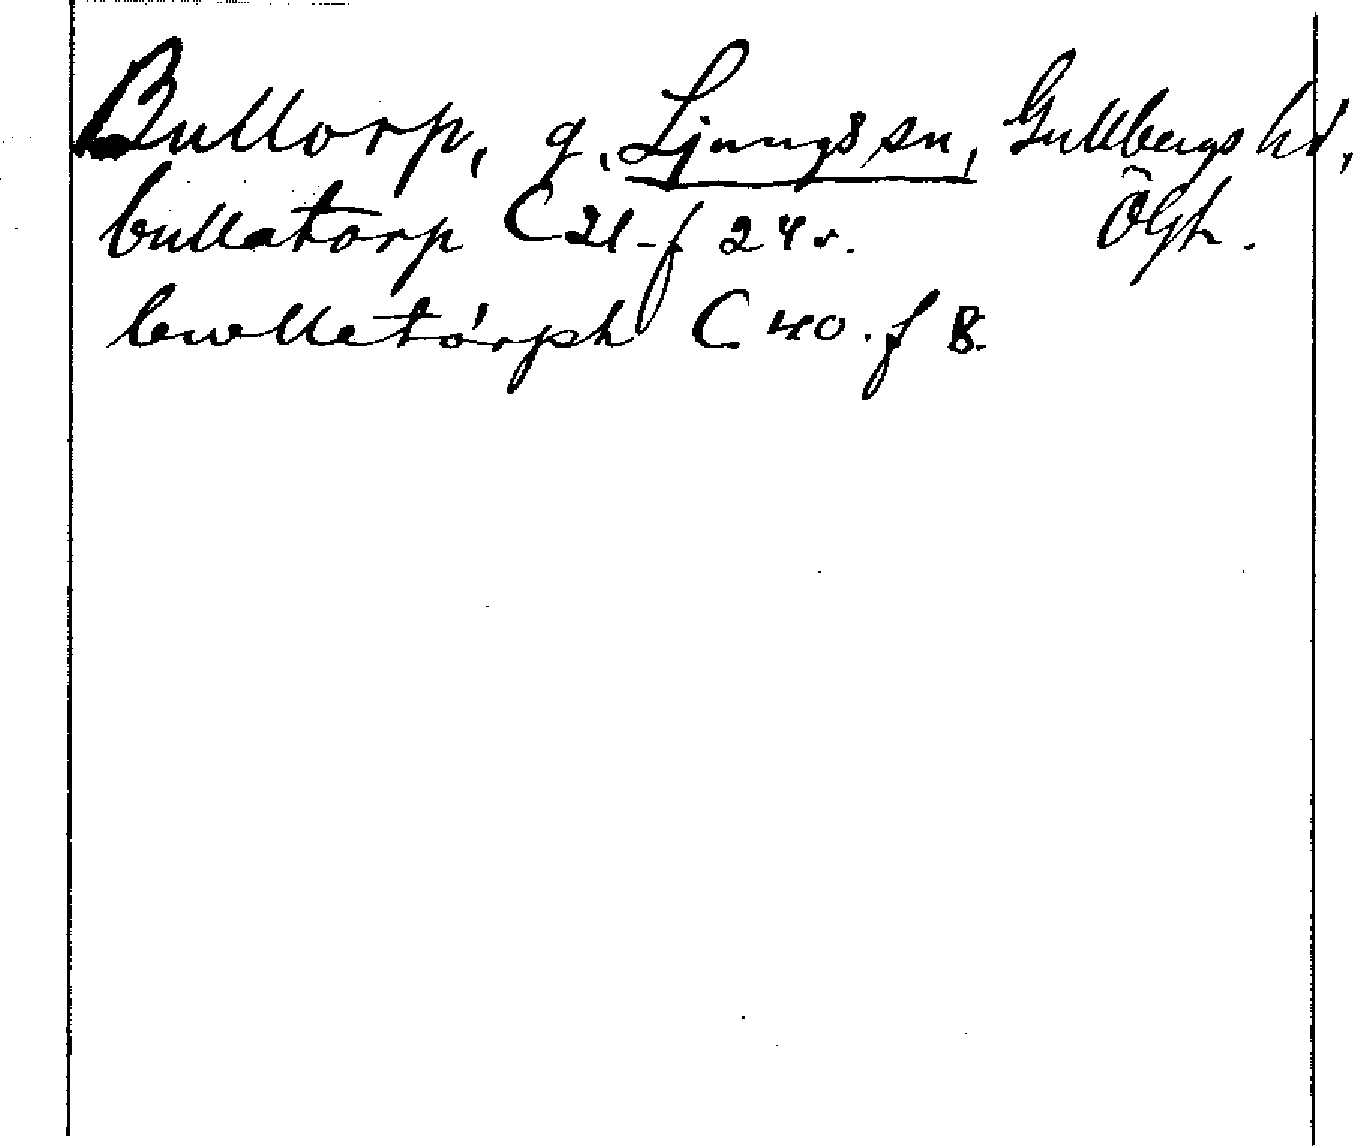 Bultorp, g. Ljungs sn, Gullbergs hd,
bullatorp C 21 f 24 v. Ögtl.
bwlletorph C 40. f 8.